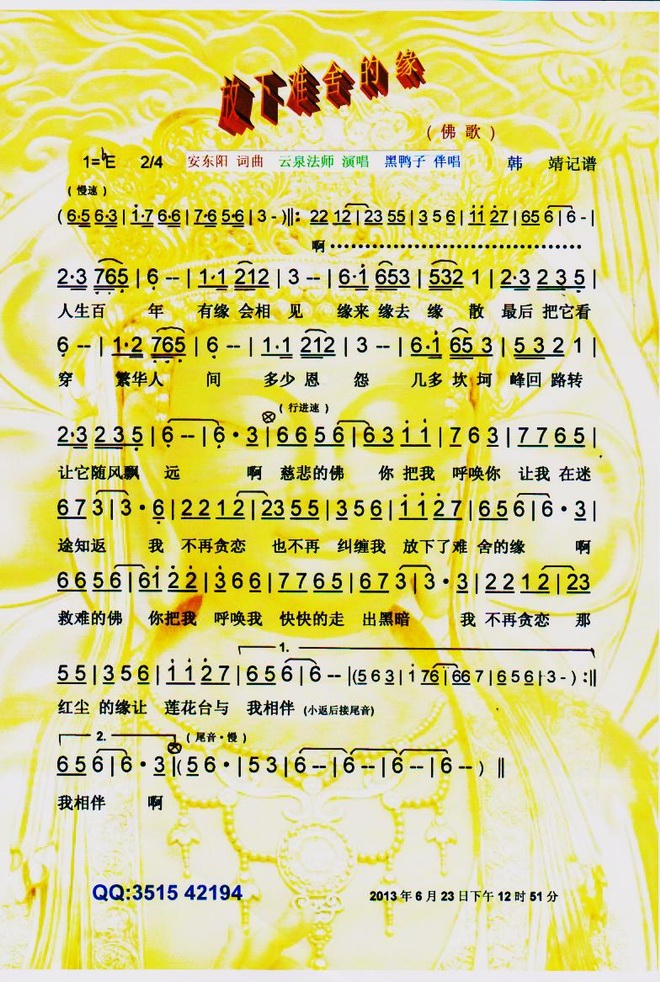 放下难舍的缘
(佛歌)
1=♭E 2/4 安东阳 词曲 云泉法师 演唱 黑鸭子 伴唱 韩 靖记谱
(慢速)
(6·5 6·3|1·7 6·6|7·6 5·6|3 -)‖: 22 12|23 55|3 5 6|11 27|65 6|6 -|
啊
2·3 765|6 --|1·1 212|3 --|6·1 653|532 1|2·3 2 3 5|
人生百 年 有缘 会相 见 缘来 缘去 缘 散 最后 把它看
6 --|1·2 765|6 --|1·1 212|3 --|6·1 65 3|5 3 2 1|
穿 繁华人 间 多少 恩 怨 几多 坎 坷 峰回 路转
2·3 2 3 5|6 --|6·3|6 6 5 6|6 3 1 1|7 6 3|7 7 6 5|
(行进速)
让它随风飘 远 啊 慈悲的佛 你 把我 呼唤你 让我 在迷
6 7 3|3·6|2 2 1 2|23 5 5|3 5 6|1 1 2 7|6 5 6|6·3|
途知返 我 不再贪恋 也不再 纠缠我 放下了难 舍的缘 啊
6 6 5 6|6 1 2 2|3 6 6|7 7 6 5|6 7 3|3·3|2 2 1 2|23
救难的佛 你把我 呼唤我 快快的走 出黑暗 我 不再贪恋 那
1.
5 5|3 5 6|1 1 2 7|6 5 6|6 --|(5 6 3|1 76|66 7|6 5 6|3 -):‖
红尘 的缘让 莲花台与 我相伴 (小返后接尾音)
2. (尾音·慢)
6 5 6|6·3|(5 6·|5 3|6 --|6 --|6 --|6 --)‖
我相伴 啊
QQ:3515 42194 2013年6月23日下午12时51分